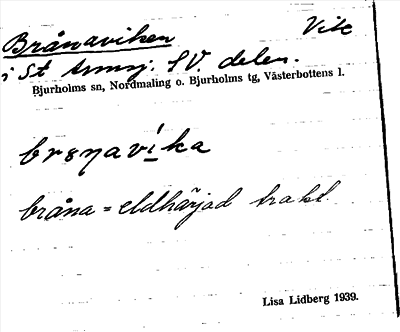 Brånaviken Vik
i St Armsj. SV. delen.
Bjurholms sn, Nordmaling o. Bjurholms tg, Västerbottens l.
brɷŋavíka
bråna = eldhärjad trakt.
Lisa Lidberg 1939.